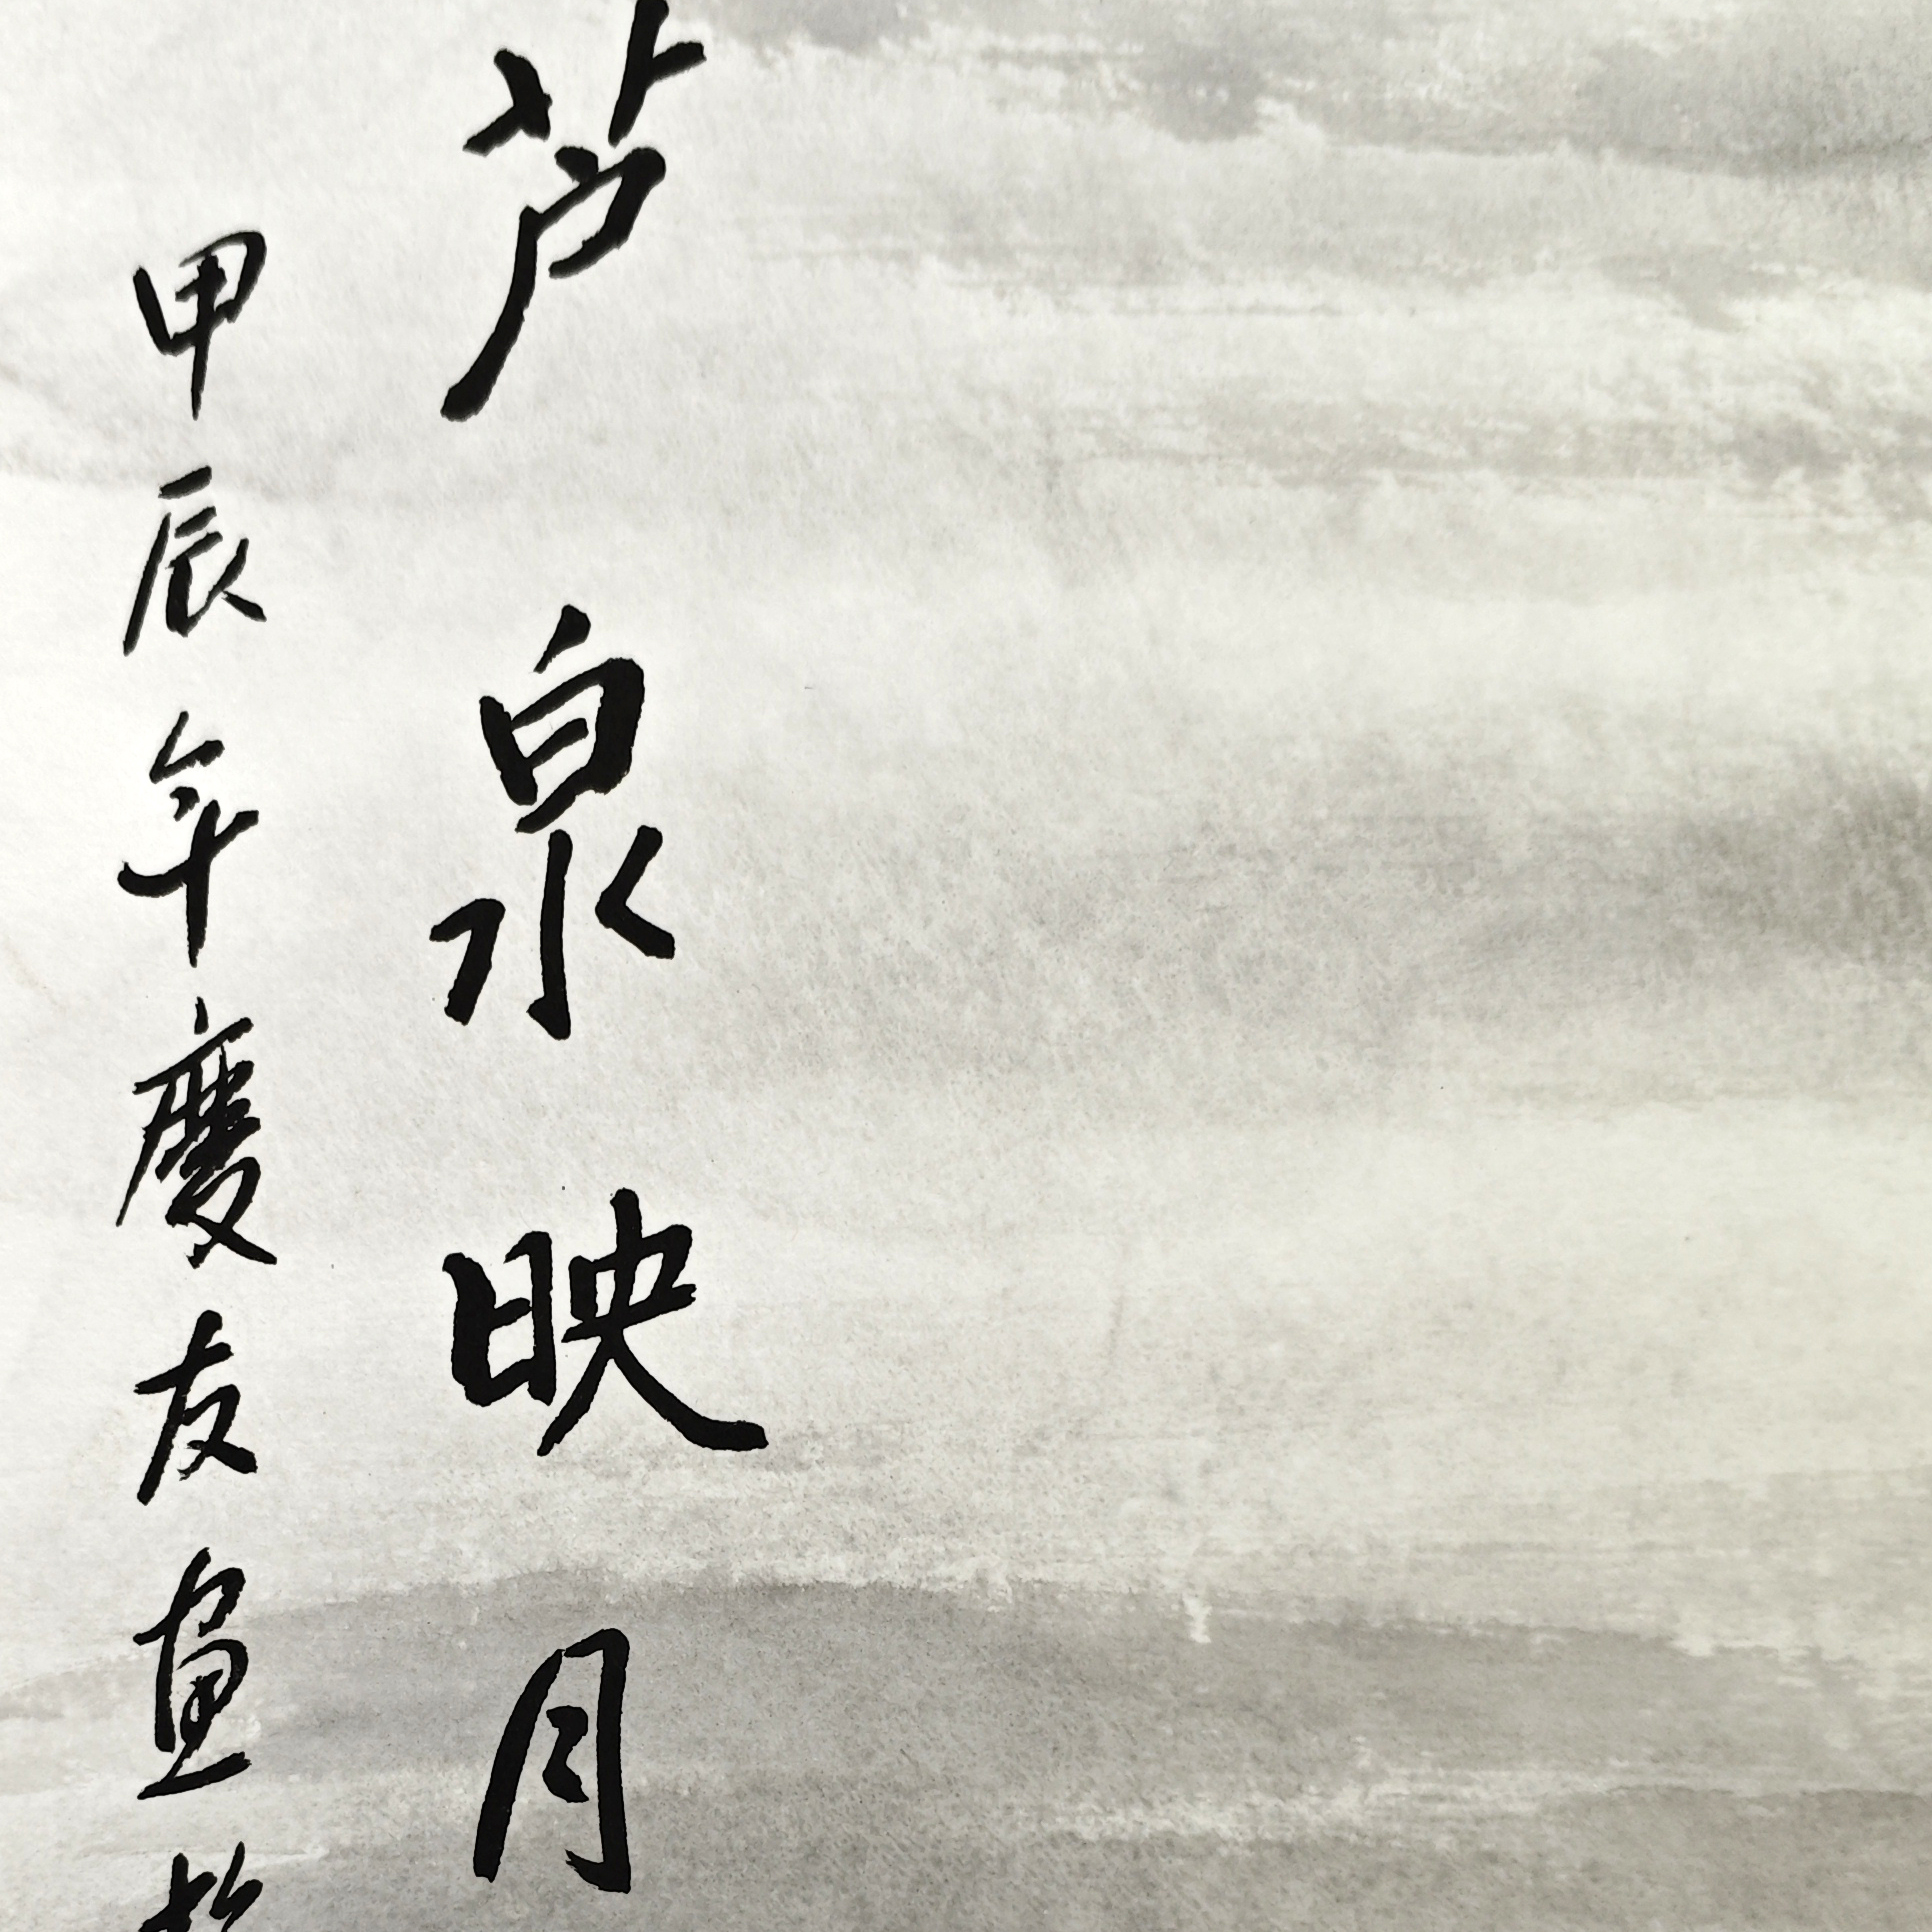 芦泉映月
甲辰年慶友画